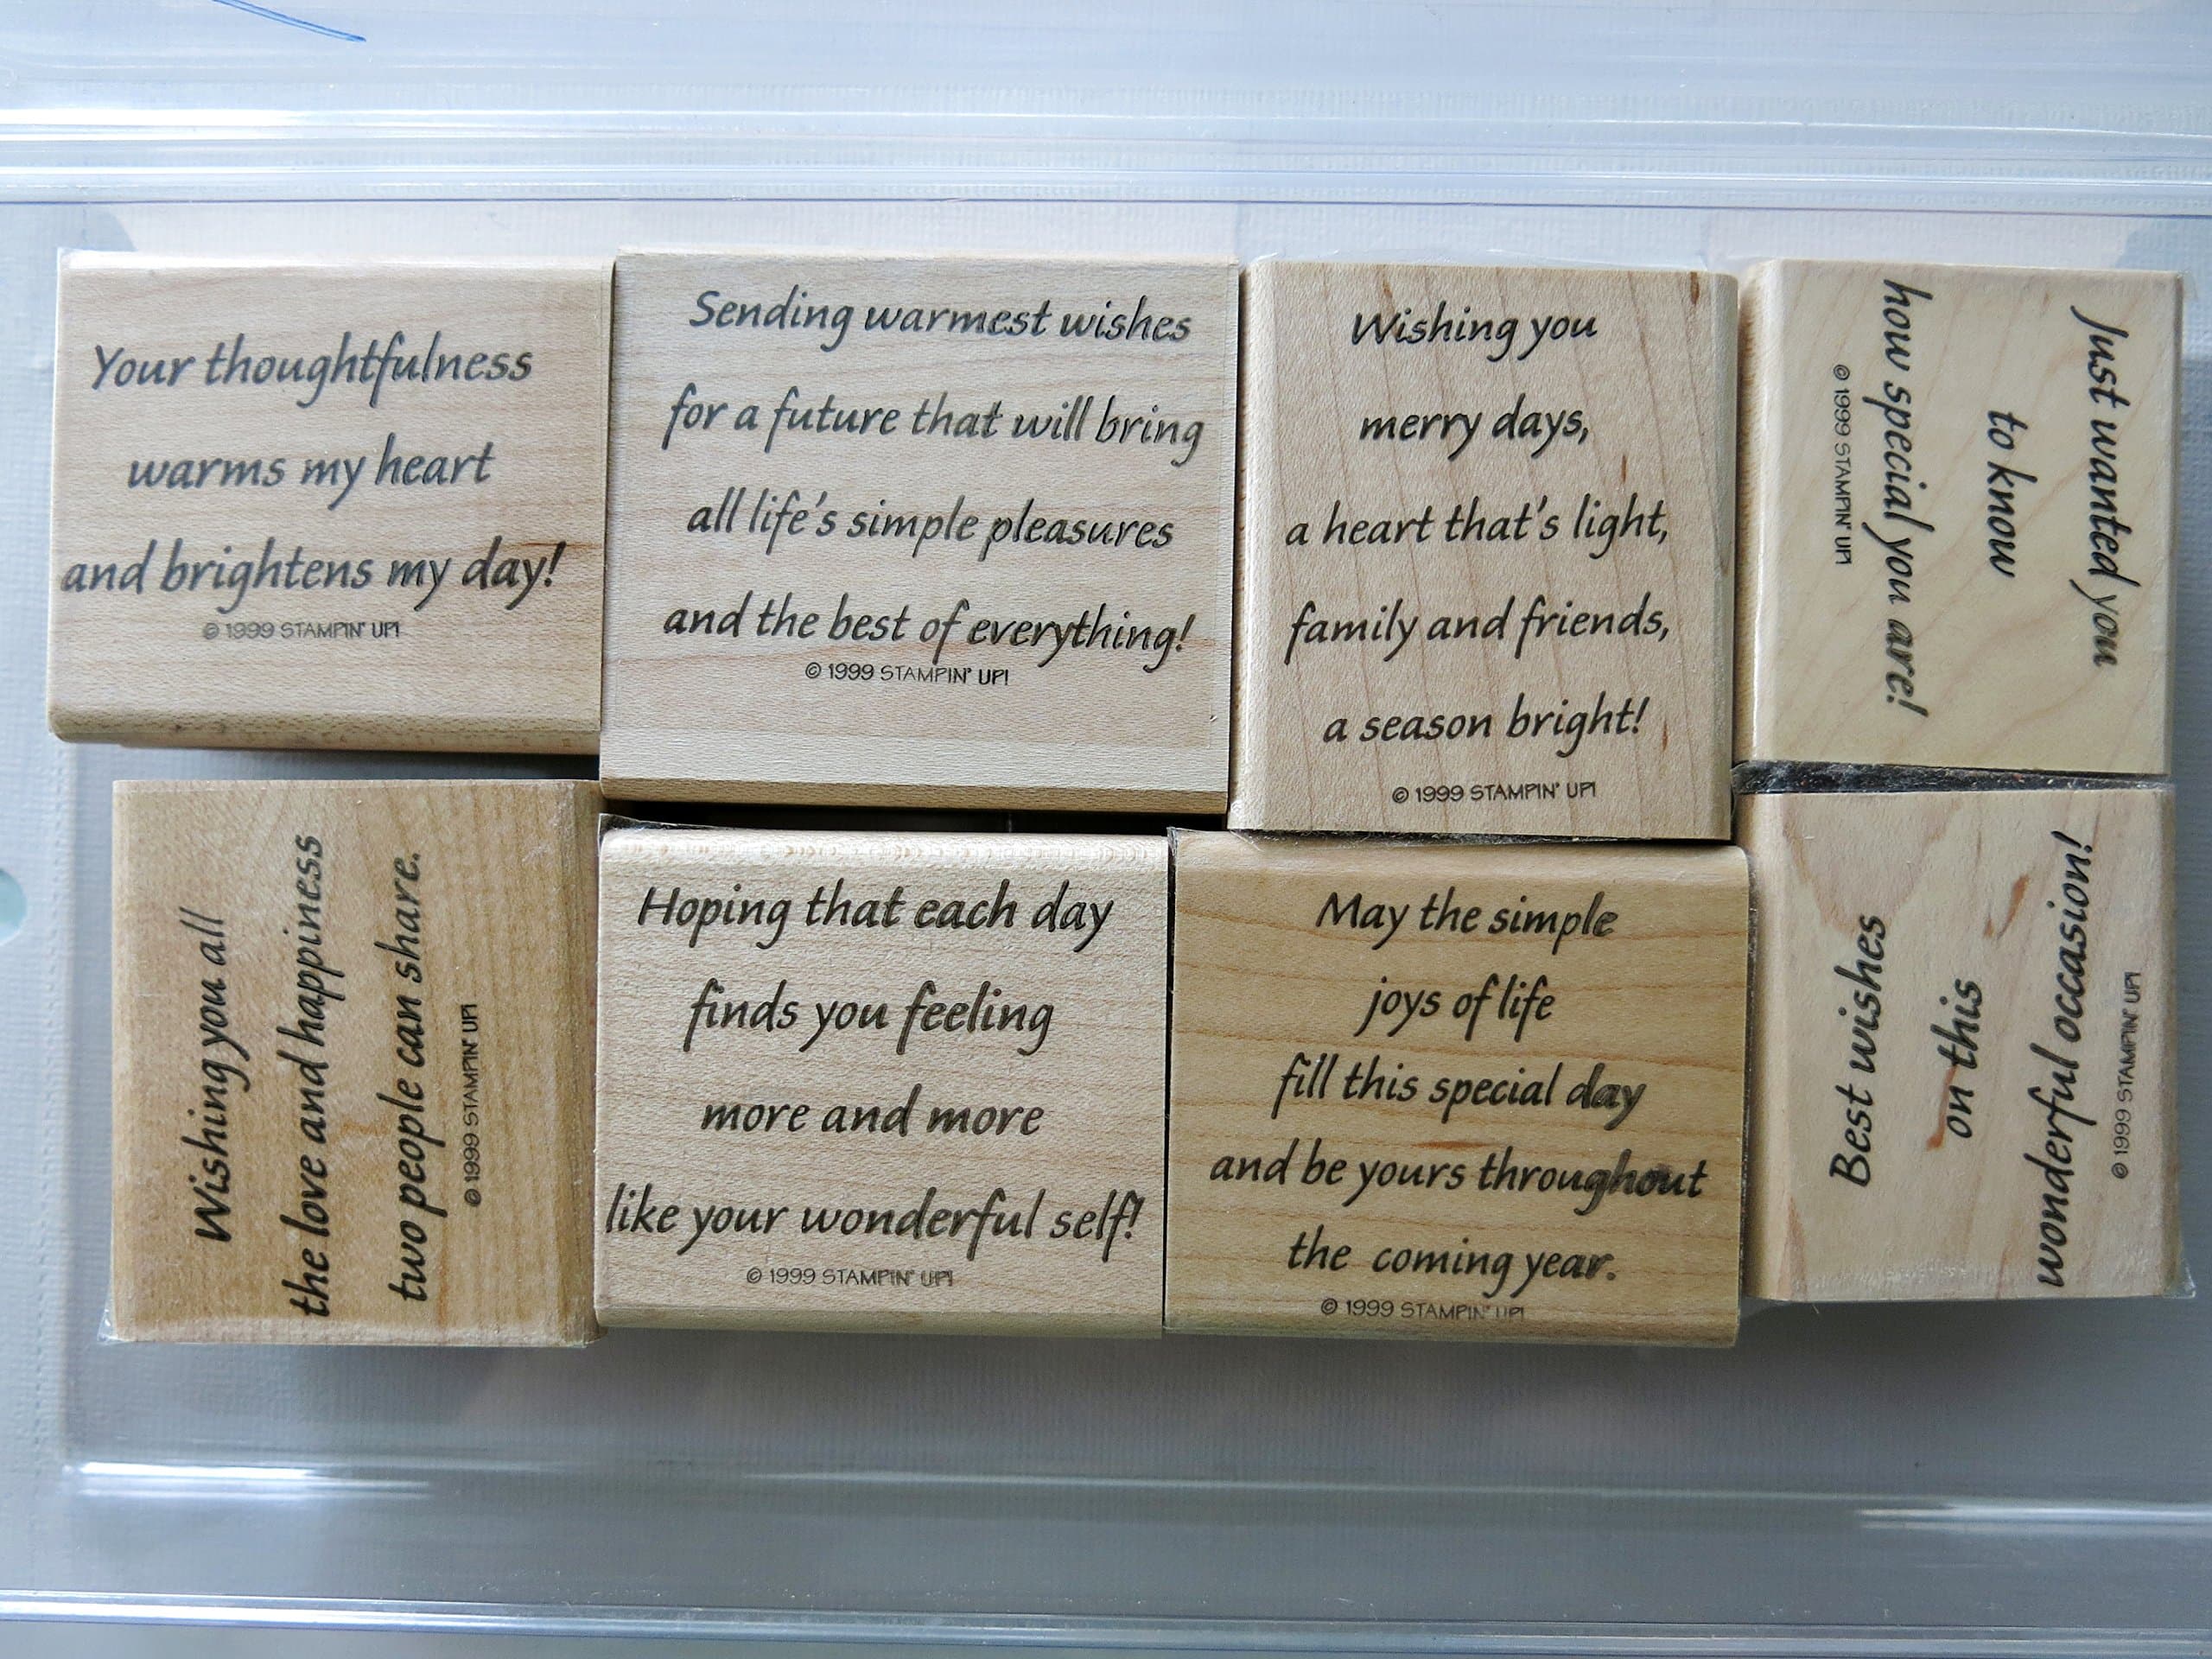 Your thoughtfulness
warms my heart
and brightens my day!
© 1999 STAMPIN' UP!
Sending warmest wishes
for a future that will bring
all life's simple pleasures
and the best of everything!
© 1999 STAMPIN' UP!
Wishing you
merry days,
a heart that's light,
family and friends,
a season bright!
© 1999 STAMPIN' UP!
Just wanted you
to know
how special you are!
© 1999 STAMPIN' UP!
Wishing you all
the love and happiness
two people can share.
© 1999 STAMPIN' UP!
Hoping that each day
finds you feeling
more and more
like your wonderful self!
© 1999 STAMPIN' UP!
May the simple
joys of life
fill this special day
and be yours throughout
the coming year.
© 1999 STAMPIN' UP!
Best wishes
on this
wonderful occasion!
© 1999 STAMPIN' UP!